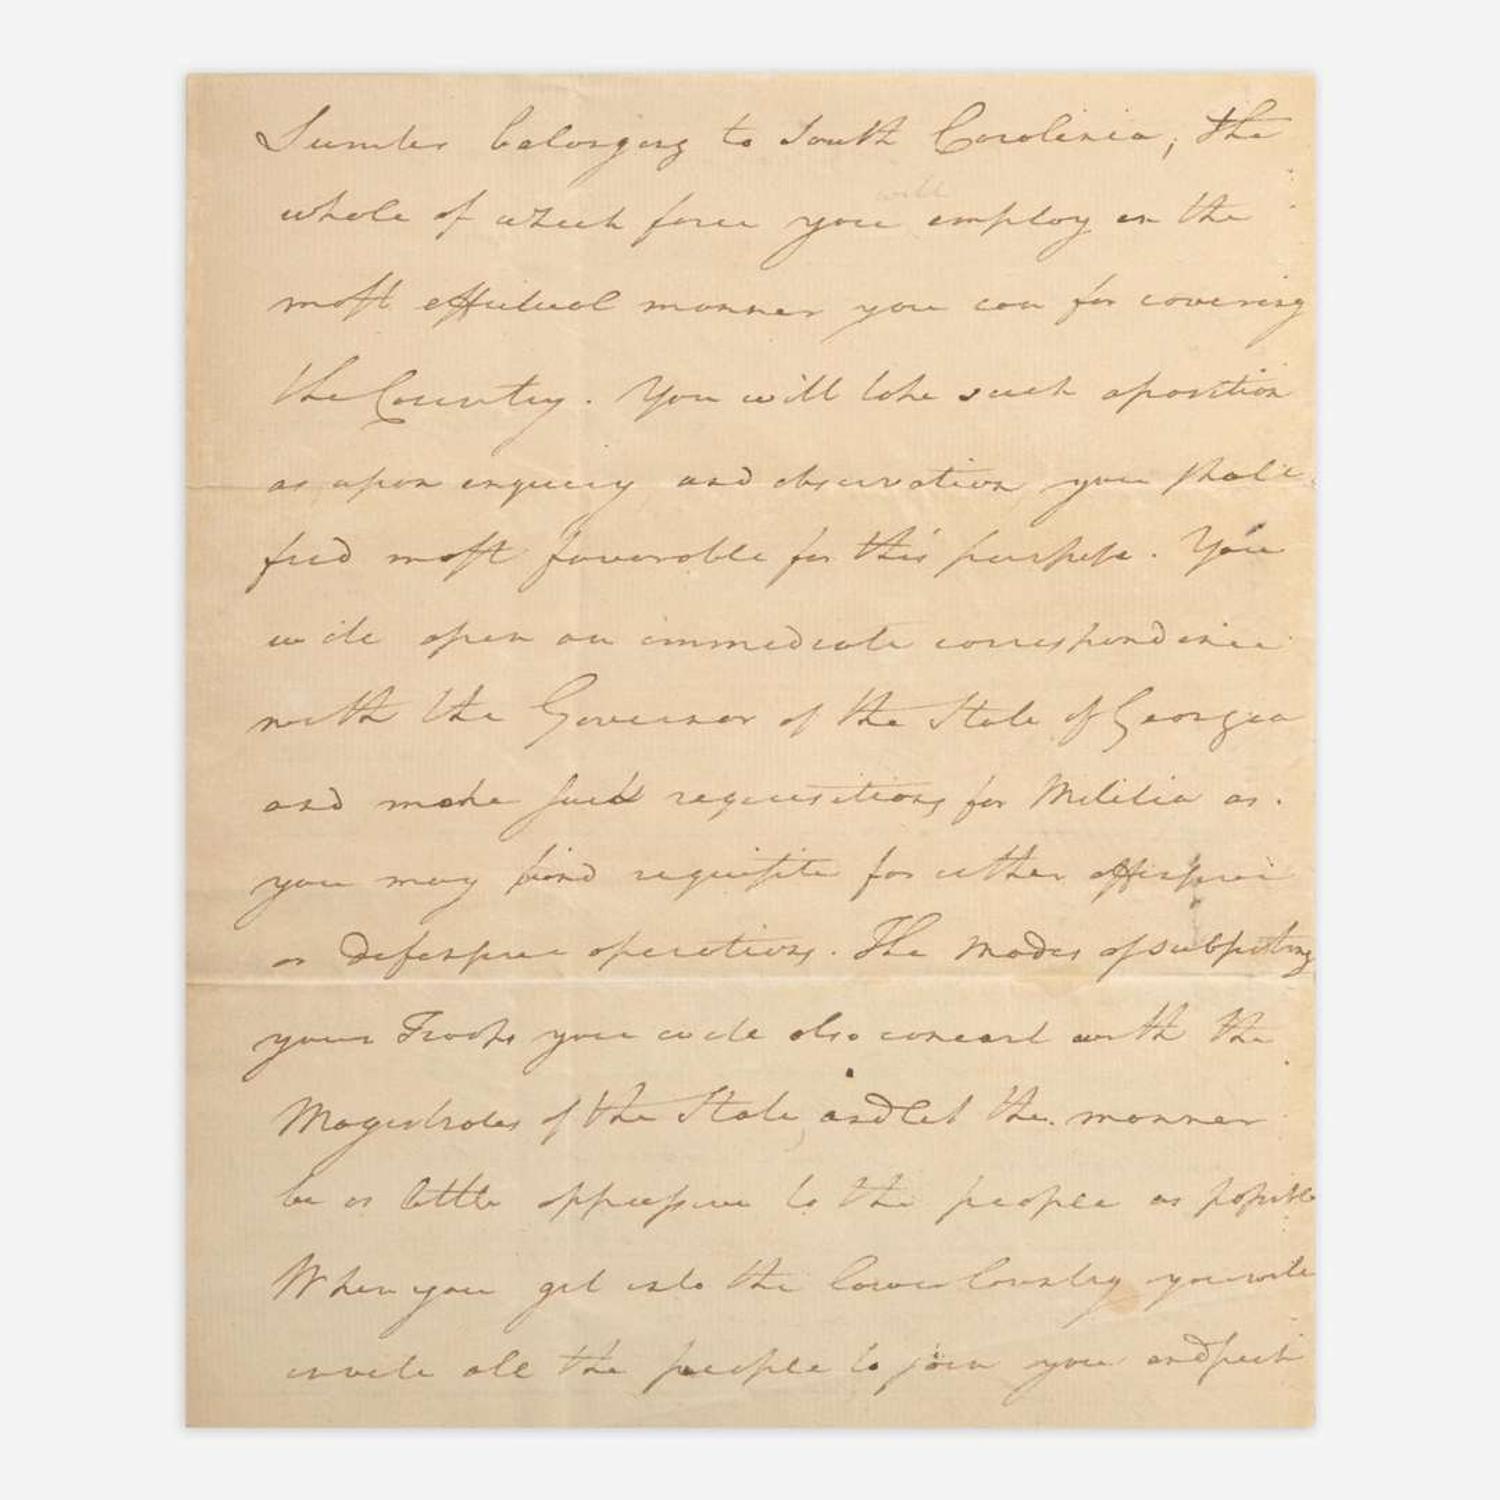 Sumter belonging to South Carolinia; the
whole of which force you will employ in the
most effectual manner you can for covering
the Country. You will take such a position
as upon enquiry and observation you shall
find most favorable for this purpose. You
will open an immediate correspondence
with the Governor of the State of Georgia
and make such requisitions for Militia as
you may find requisite for either offensive
or defensive operations. The modes of subsisting
your Troops you will also concert with the
Magistrates of the State, and let the manner
be as little oppressive to the people as possible
When you get into the lower Country you will
invite all the people to join you and such